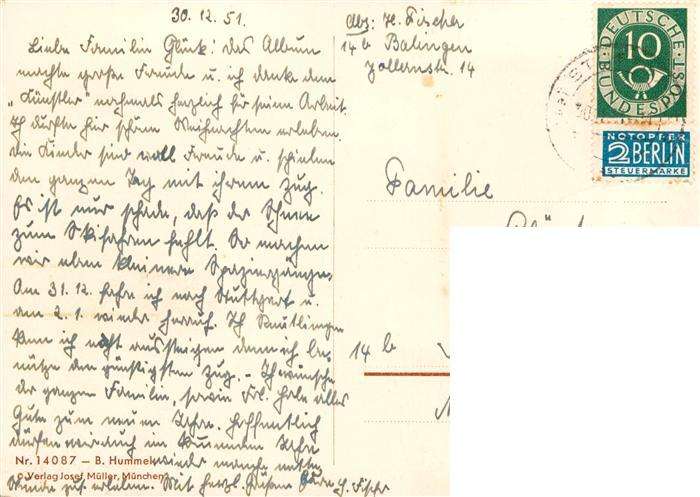 30.12.51.
Liebe Familie Glück: das Album
machte große Freude u. ich danke dem
„Künstler" nochmals herzlich für seine Arbeit.
Ich durfte hier schöne Weihnachten erleben,
die Kinder sind voll Freude u. spielen
den ganzen Tag mit ihrem Zug.
Es ist nur schade, daß der Schnee
zum Skifahren fehlt. So machen
wir eben kleinere Spaziergänge.
Am 31.12 fahre ich nach Stuttgart u.
am 2.1. wieder herauf. Reutlingen
kann ich nicht aussteigen denn ich be-
nütze den günstigsten Zug. - Ich wünsche
der ganzen Familie, sowie Frl. alles
Gute zum neuen Jahre. Hoffentlich
dürfen wir auch im Jahre
wieder manche nette
Stunde zus. erleben. Mit herzl. Grüßen H. Fischer
Nr. 14087 – B. Hummel
© Verlag Josef Müller, München
Abs: H. Fischer
14b Balingen
Zollernstr. 14
DEUTSCHE BUNDESPOST
10
NOTOPFER
2 BERLIN
STEUERMARKE
Familie
14 b